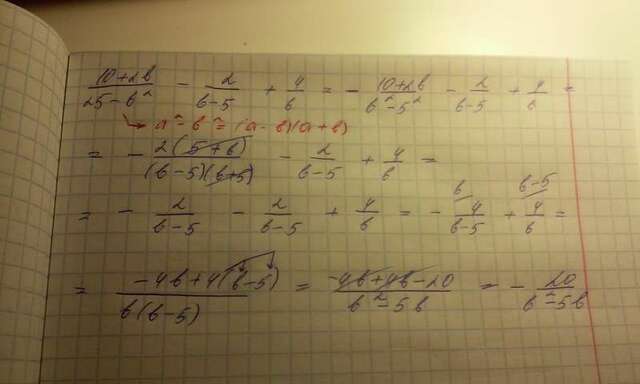 (10+2b)/(25-b²) - 2/(b-5) + 4/b = - (10+2b)/(b²-5²) - 2/(b-5) + 4/b =
→ a²-b² = (a-b)(a+b)
= - 2(5+b)/((b-5)(b+5)) - 2/(b-5) + 4/b =
= - 2/(b-5) - 2/(b-5) + 4/b = - 4/(b-5) + 4/b =
b b-5
= (-4b+4(b-5))/(b(b-5)) = (-4b+4b-20)/(b²-5b) = - 20/(b²-5b)